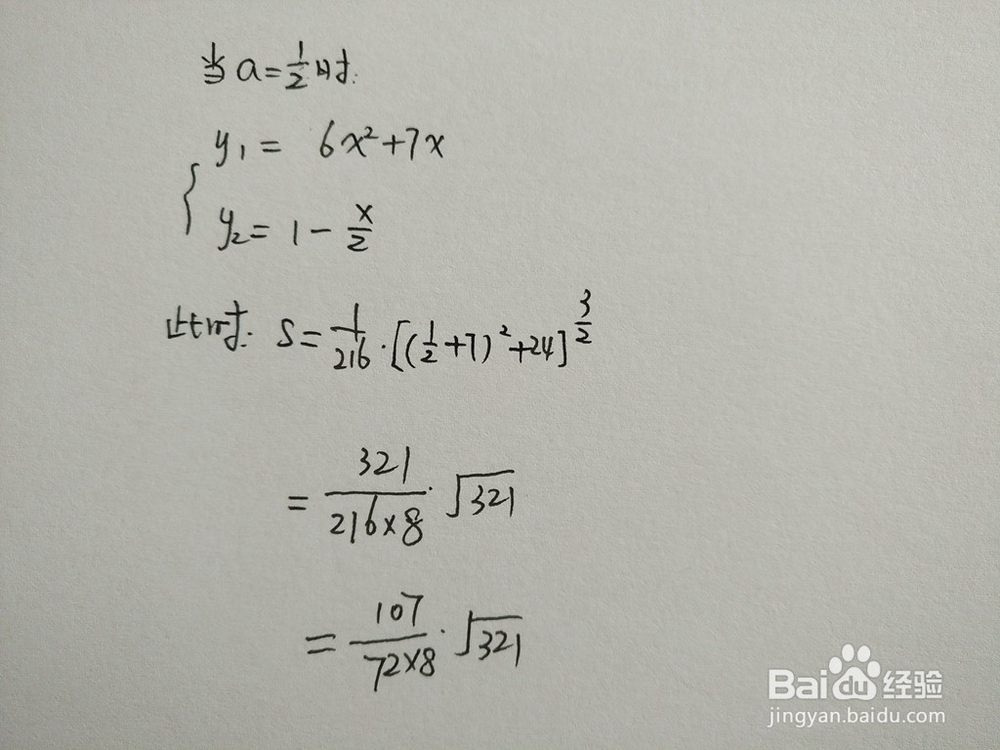 当a=1/2时.
y₁ = 6x²+7x
y₂= 1 - x/2
此时. S=1/216·[(1/2+7)²+24]^(3/2)
= 321/(216×8)·√321
= 107/(72×8)·√321
Baidu 经验
jingyan.baidu.com